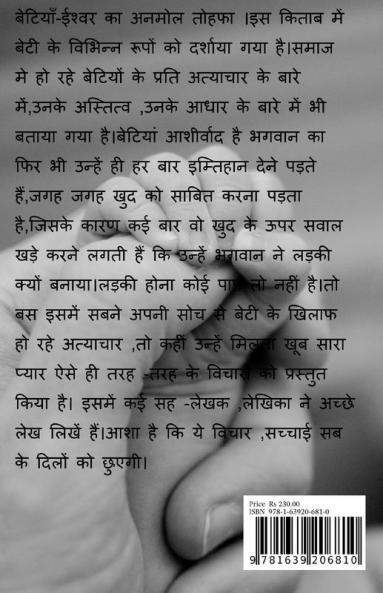 बेटियाँ-ईश्वर का अनमोल तोहफा ।इस किताब में
बेटी के विभिन्न रूपों को दर्शाया गया है।समाज
मे हो रहे बेटियों के प्रति अत्याचार के बारे
में,उनके अस्तित्व ,उनके आधार के बारे में भी
बताया गया है।बेटियां आशीर्वाद है भगवान का
फिर भी उन्हें ही हर बार इम्तिहान देने पड़ते
हैं,जगह जगह खुद को साबित करना पड़ता
है,जिसके कारण कई बार वो खुद के ऊपर सवाल
खड़े करने लगती हैं कि उन्हें भगवान ने लड़की
क्यों बनाया।लड़की होना कोई पाप तो नहीं है।तो
बस इसमें सबने अपनी सोच से बेटी के खिलाफ
हो रहे अत्याचार ,तो कहीं उन्हें मिलता खूब सारा
प्यार ऐसे ही तरह -तरह के विचारों को प्रस्तुत
किया है। इसमें कई सह -लेखक ,लेखिका ने अच्छे
लेख लिखें हैं।आशा है कि ये विचार ,सच्चाई सब
के दिलों को छुएगी।
Price Rs 230.00
ISBN 978-1-63920-681-0
9 781639 206810